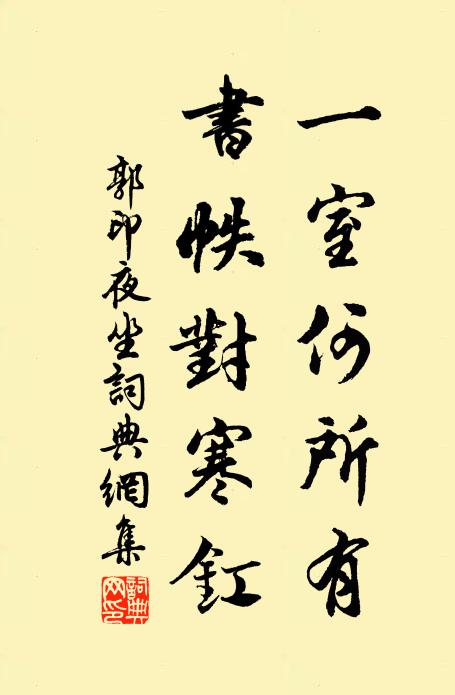 一室何所有
書帙對寒釭
郭印夜坐詞典網集
詞典
网印